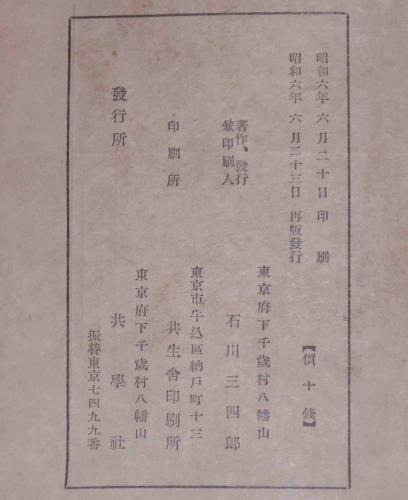 昭和六年 六月二十日 印刷
昭和六年 六月二十三日 再版發行
【價十錢】
東京府下千歳村八幡山
著作、發行
兼印刷人
石川三四郎
東京市牛込區納戸町十三
印刷所
共生會印刷所
東京府下千歳村八幡山
發行所
共學社
振替東京七四九九番